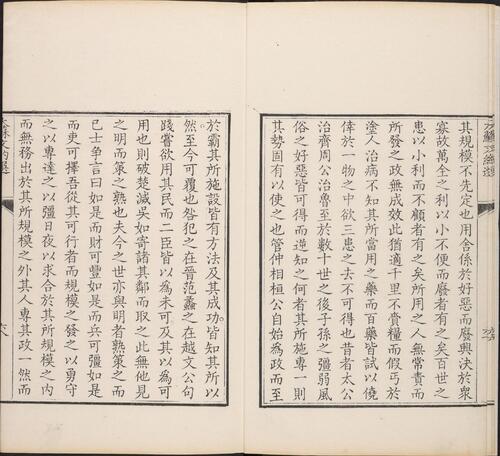 其規模不先定也用舍係於好惡而廢興決於衆
寡故萬全之利以小不便而廢者有之矣百世之
患以小利而不顧者有之矣所用之人無常責而
所發之政無成效此猶適千里不賫糧而假丐於
塗人治病不知其所當用之藥而百藥皆試以僥
倖於一物之中欲三患之去不可得也昔者太公
治齊周公治魯至於數十世之後子孫之彊弱風
俗之好惡皆可得而逆知之何者其所施專一則
其勢固有以使之也管仲相桓公自始爲政而至
於霸其所施設皆有方法及其成功皆知其所以
然至今可覆也咎犯之在晉范蠡之在越文公句
踐嘗欲用其民而二臣皆以爲未可及其以爲可
用也則破楚滅吳如寄諸其鄰而取之此無他見
之明而策之熟也夫今之世亦與明者熟策之而
已士爭言曰如是而財可豐如是而兵可彊如是
而吏可擇吾從其可行者而規模之發之以勇守
之以專達之以彊日夜以求合於其所規模之內
而無務出於其所規模之外其人專其政一然而